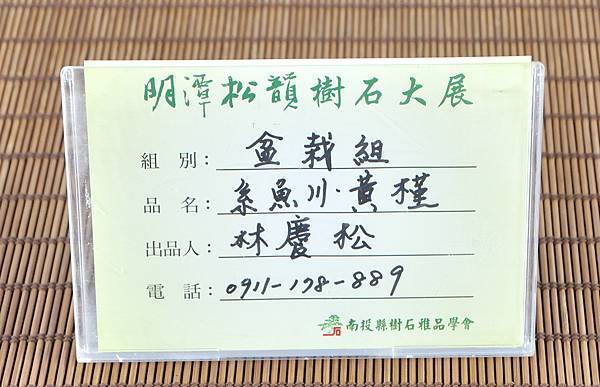 明潭松韻樹石大展
組 別：盆栽組
品 名：糸魚川·黃槿
出品人：林慶松
電 話：0911-178-889
南投縣樹石雅品學會